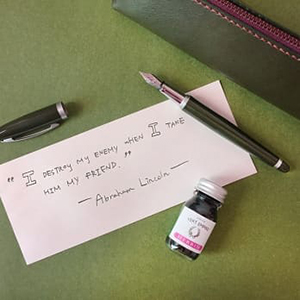 " I DESTROY MY ENEMY WHEN I TAKE
HIM MY FRIEND. "
— Abraham Lincoln —
HERBIN